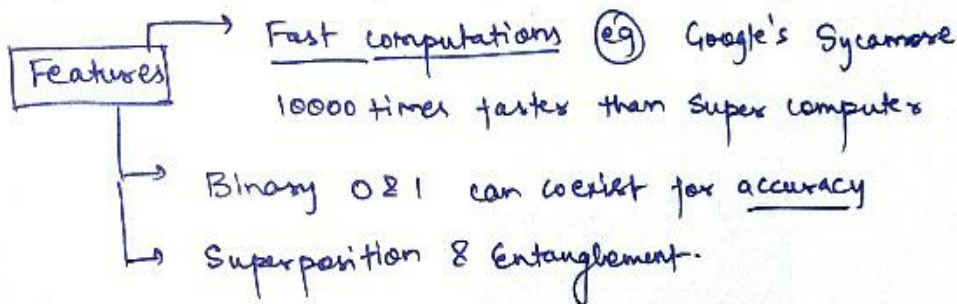 Features
Fast computations eg Google's Sycamore
10000 times faster than Super computer
Binary 0 & 1 can coexist for accuracy
Superposition & Entanglement.